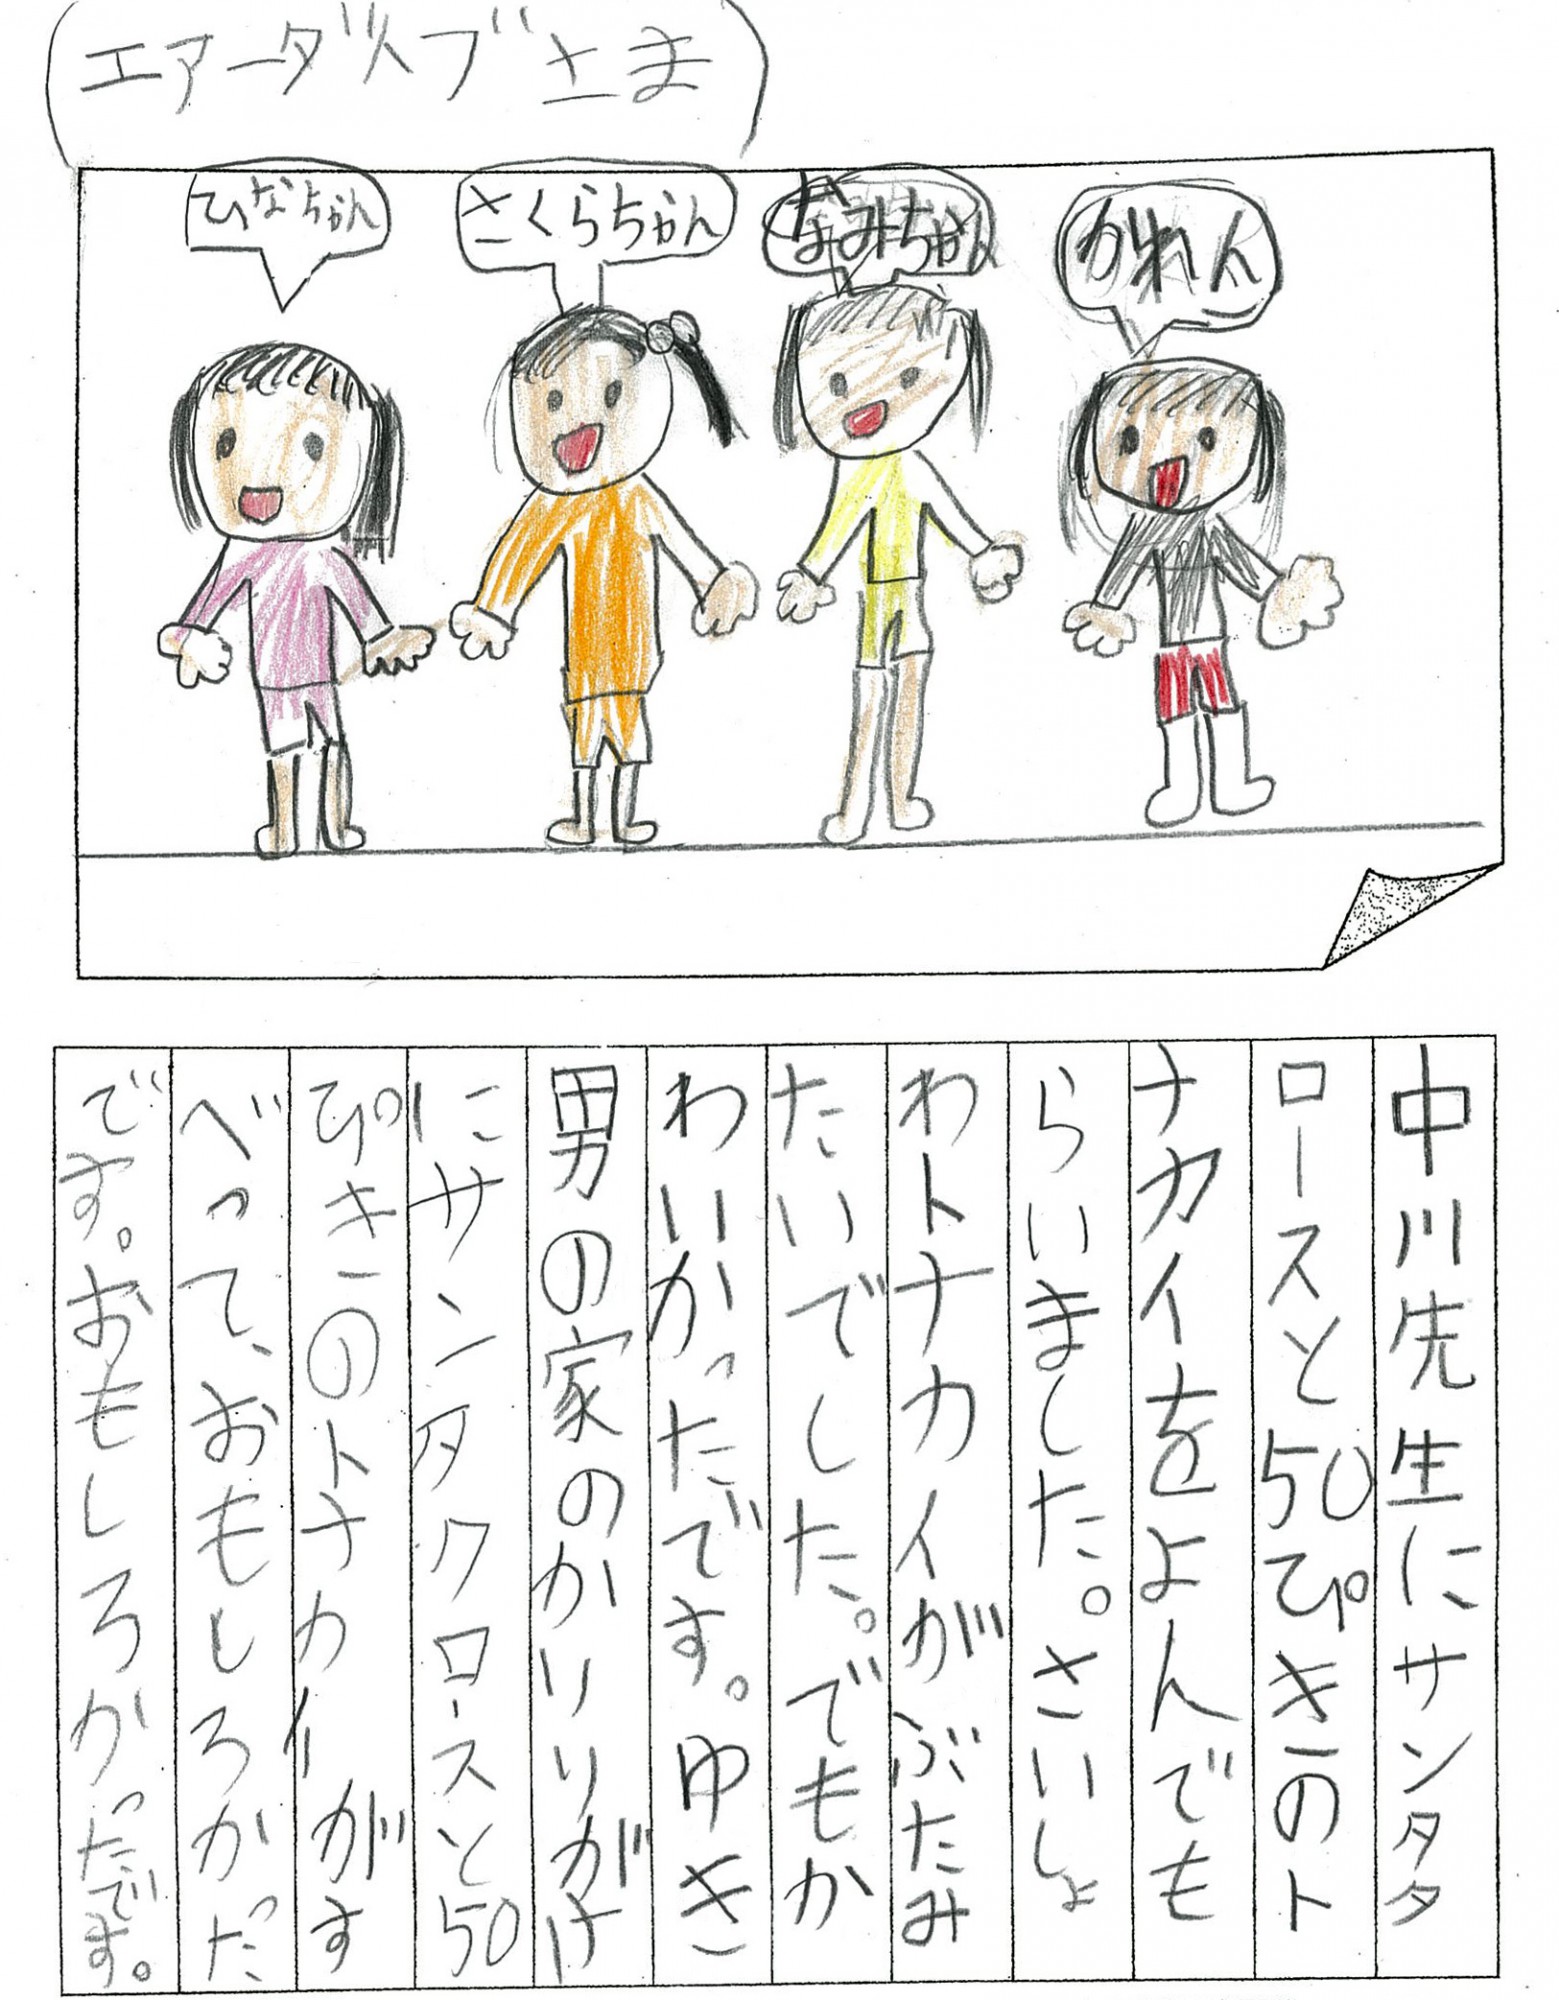 エアーダイブさま
ひなちゃん
さくらちゃん
なみちゃん
かれん
中川先生にサンタタ
ロースと50ぴきのト
ナカイをよんでも
らいました。さいしょ
わトナカイがぶたみ
たいでした。でもか
わいかっだです。ゆき
男の家のかいりがけ
にサンタクロースと50
ぴきのトナカイがす
べって、おもしろがっだ
です。おもしろがっだです。